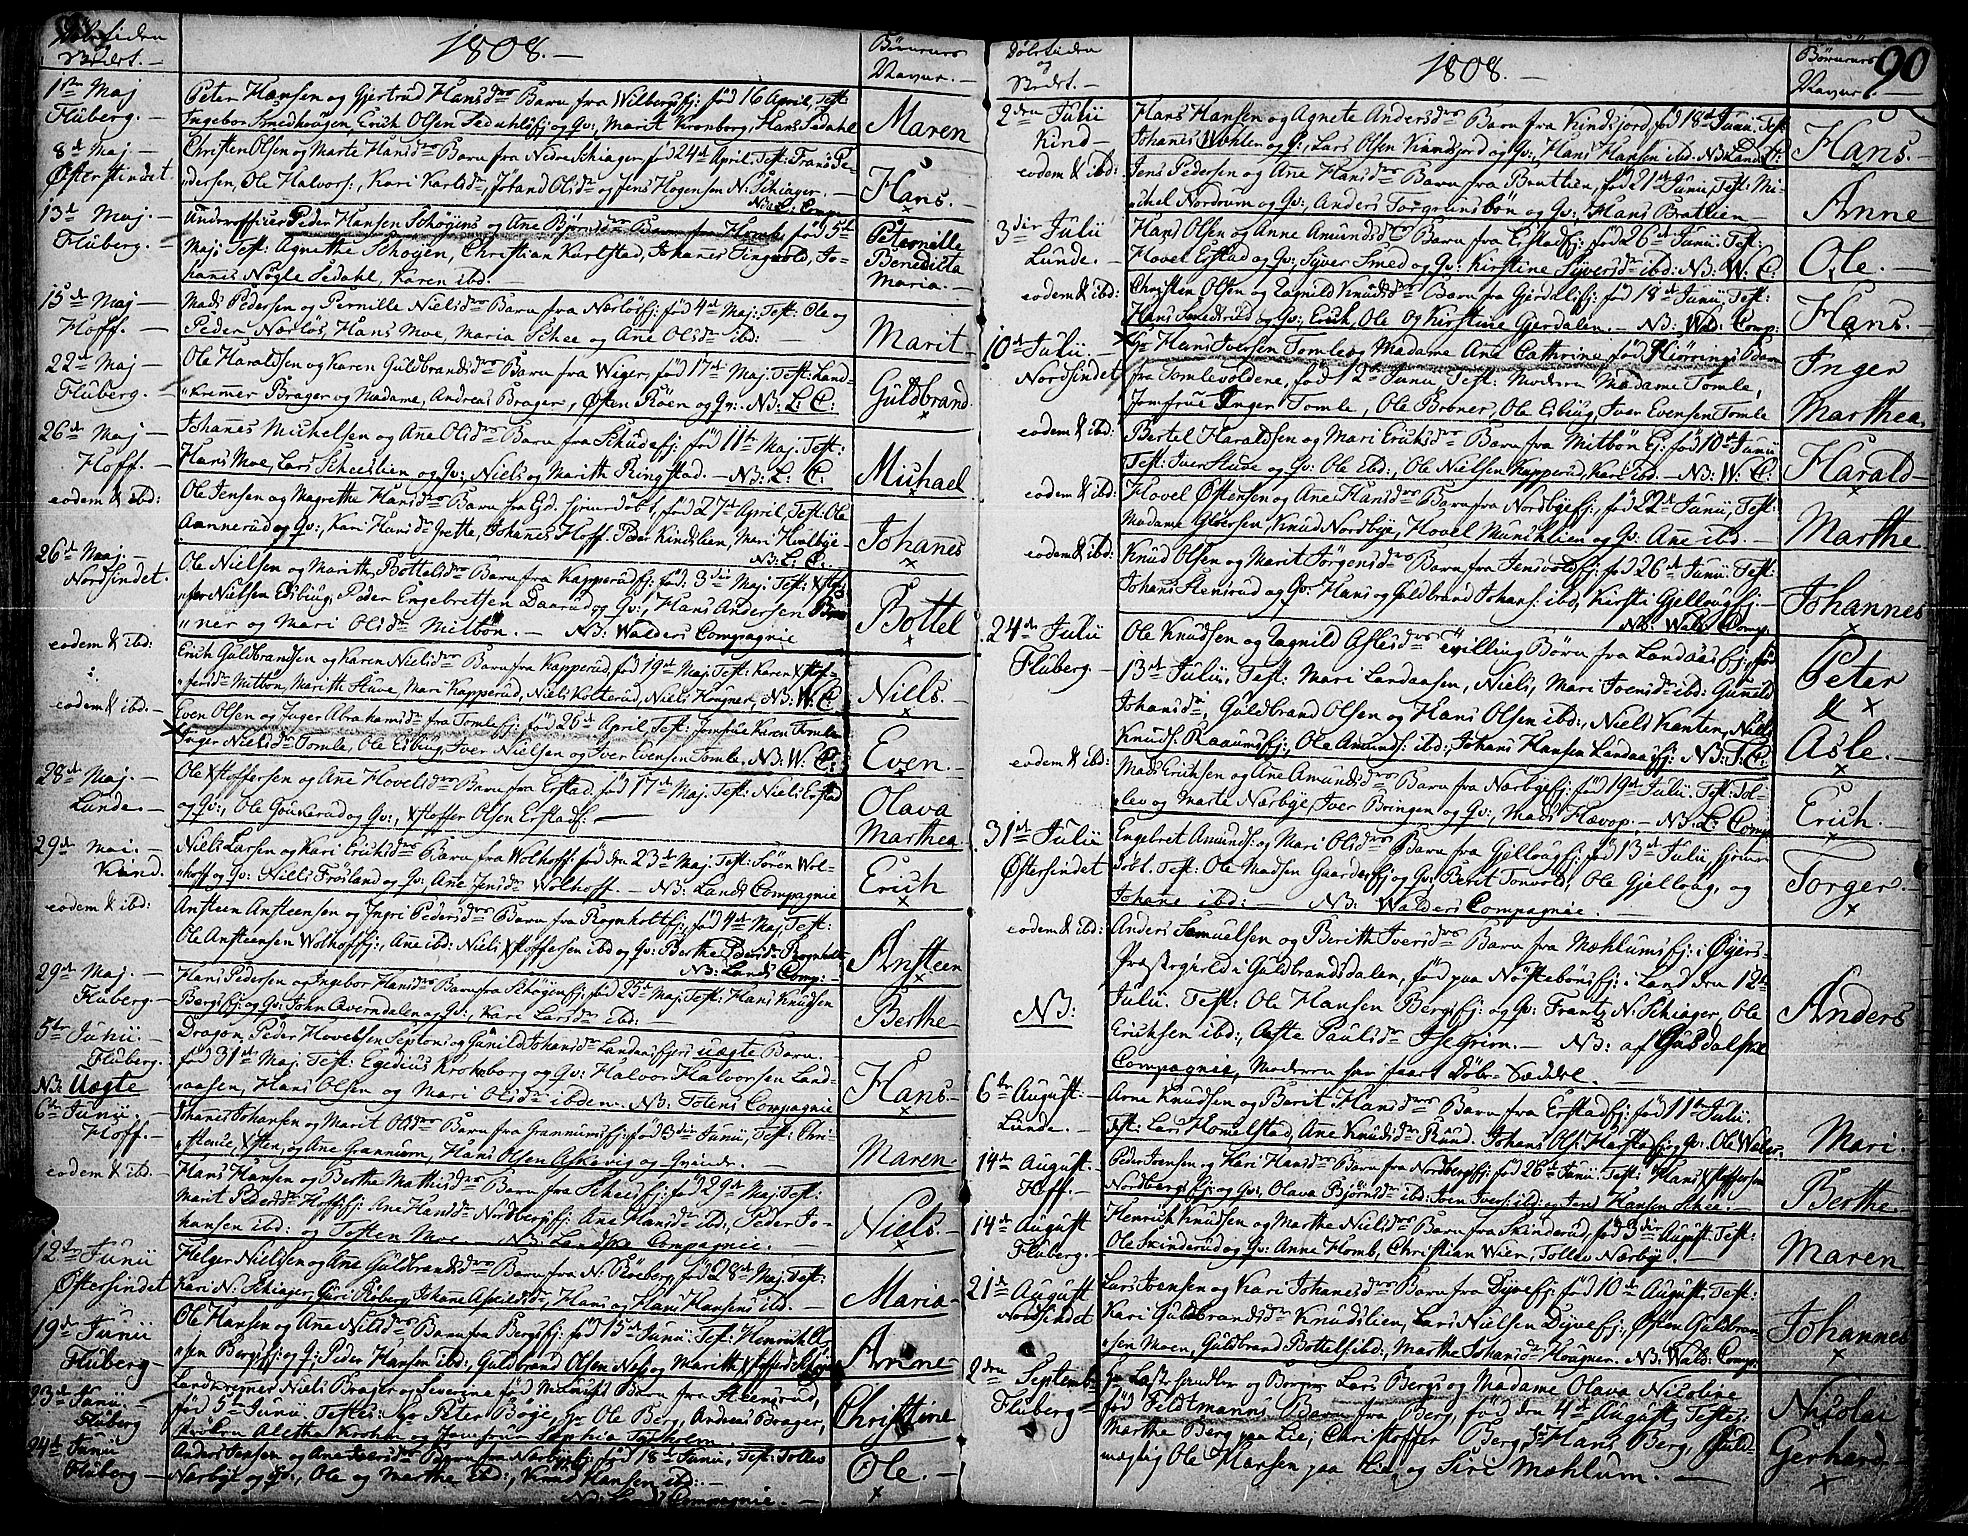 1808.
Børnenes
Navne.
1ste Maj
Fluberg.
Peter Hansen og Gjertrud Hansdr Barn fra Wilbergsej: fød 16 April, Test:
Ingebor Smedhougen, Erich Olsen Sedahlsej og Qv:, Marit Kronborg, Hans Sedahl
Maren
8de Maj
Østersindet
Christen Olsen og Marte Hansdr Barn fra Nedre Schiager, fød 24de April. Test: Frans Pe-
dersen, Ole Halvors:, Kari Karlsdr, Johand Olsdr og Jens Hogensen N: Schiager.
NB: L: Comp:
Hans.
13de Maj.
Fluberg.
Underofficer Peder Hansen Schøyens og Ane Bjørnsdr Barn fra Homb, fød 5te
Maj. Test: Agnethe Schøyen, Christian Karlstad, Johannes Fingvold, Jo-
hanes Nøgle Sedahl, Karen ibd:
Peternille
Benedikta
Maria.
15de Maj
Hoff.
Mads Pedersen og Pernille Nielsdr Barn fra Nørløsej: fød 4de Maj. Test: Ole og
Peder Nørløs, Hans Moe, Maria Schee og Ane Olsdr ibd:
Marit
22de Maj
Fluberg.
Ole Haraldsen og Karen Guldbrandsdr Barn fra Wiger, fød 17de Maj. Test: Land-
kremer Brager og Madame, Andreas Brager, Østen Røen og Qv: NB: L: C:
Guldbrand.
26de Maj
Hoff.
Johanes Michelsen og Ane Olsdr Barn fra Schudesej: fød 11te Maj. Test:
Hans Moe, Lars Scheeslien og Qv:, Niels og Marith Ringstad NB: L: C:
Michael
eodem & ibd:
Ole Jensen og Magrethe Hansdr Barn fra Ejd. hjemdøbt, fød 27de April. Test: Ole
Aannerud og Qv:, Kari Hansdr Grette, Johannes Hoff. Peder Kindslien, Mari Hvalbye
NB: L: C:
Johannes
26de Maj.
Nordsindet.
Ole Nielsen og Marith Bottelsdr Barn fra Kapperudej: fød: 3die Maj. Test: Xstof-
fer Nielsen Esbiug, Peder Engebretsen Daarud og Qv:, Hans Andersen Brø-
ner og Mari Olsdr Mitbøn. NB: Walders Compagnie
Bottel
eodem & ibd:
Erich Guldbrandsen og Karen Nielsdr Barn fra Kapperud, fød 19de Maj. Test: Karen Xstof-
fersdr Mitbøn, Marith Stuve, Mari Kapperud, Niels Kolterud, Niels Hougner, NB: W: C:
Niels.
eodem & ibd:
Even Olsen og Inger Abrahamsdr fra Tomlesej: fød 26de April, Test: Jomfrue Karen Tomle
Inger Nielsdr Tomle, Ole Esbiug, Iver Nielsen og Iver Evensen Tomle, NB: W: C:
Even.
28de Maj.
Lunde.
Ole Xstoffersen og Ane Hovelsdr Barn fra Erstad, fød 17de Maj. Test: Niels Erstad
og Qv:, Ole Gonnerud og Qv:, Xstoffer Olsen Erstads:
Olava
Marthea.
29de Mai.
Kind.
Niels Larsen og Kari Erichsdr Barn fra Wolhoff: fød den 23de Maj. Test: Søren Wol-
hoff og Qv: Niels Frøsland og Qv: Ane Jensdr Wolhoff. NB: Lands Compagnie
Erich
eodem & ibd:
Ansteen Ansteensen og Ingri Pedersdr Barn fra Rognholtsej: fød 4de Maj. Test:
Ole Ansteensen Wolhoffsej:, Ane ibd: Niels Xstoffersen ibd og Qv: Berthe Pedersdr Rognholt
NB: Lands Comp:
Ansteen
29de Maj.
Fluberg
Hans Pedersen og Ingebor Hansdr Barn fra Schøyensej: fød 25de Maj. Test: Hans Knudsen
Bergsej: og Qv: John Qverndalen og Qv:, Kare Larsdr ibd:
Berthe
5te Junii.
Fluberg.
NB: Uægte
Dragon, Peder Hovelsen Septons og Gunild Johansdr Landaasejers uægte Barn.
fød 31de Maj. Test: Egedius Krokborg og Qv: Halvor Halvorsen Land-
aasen, Hans Olsen og Mari Olsdr ibdem. NB: Totens Compagnie
Hans.
6te Junii.
Hoff.
Johanes Johansen og Marit Olsdr Barn fra Grannumsej: fød 3die Junii, Test: Chri-
stense, Xsten, og Ane Grannum, Hans Olsen Askevig og Qvinde.
Maren.
eodem & ibd.
Hans Hansen og Berthe Mathisdr Barn fra Scheesej: fød 29de Maj. Test:
Marit Pedersdr Hoffsej: Ane Hansdr Nordbergsej: Ane Hansdr ibd:, Peder Jo-
hansen ibd: og Testen Moe. NB: Landske Compagnie.
Niels.
12te Junii
Østersindet
Helger Nielsen og Ane Guldbrandsdr Barn fra N: Røeberg, fød 28de Maj. Test:
Kari N: Schiager, Giri Røberg, Johane Askildsdr, Hans og Hans Hansens ibd.
Maria
19de Junii
Fluberg
Ole Hansen og Ane Nilsdr Barn fra Bergsej: fød 15de Junii. Test: Henrich Ol-
sen Bergsej: og Q: Peder Hansen ibd:, Guldbrand Olsen Næss og Marith Xstoffersdr
Anne
23de Junii.
Fluberg
Landkremer Niels Brager og Severine fød M: Barn fra Steensrud,
fød 5te Junii, Testes: Hr Peter Bøje, Hr Ole Berg, Andreas Brager,
Frøken Alethe Krohn og Jomfrue Sophia Tyrholm.
Christine
24de Junii
Fluberg
Anders Jensen og Ane Iversdr Barn fra Nærbyej: fød 18de Junii, Test: Tollev
Nærbye og Qv:, Ole og Marthe ibd:, Knud Hansen ibd:
NB: Lands Compagnie.
Ole.
Døbetiden
og
Stedet.
1808.
Børnenes
Navne.
90
2den Julii
Kind
Hans Hansen og Agnete Andersdr Barn fra Kindsjord, fød 18de Junii, Test:
Johanes Wohlen og Q:, Lars Olsen Kindsjord og Qv:, Hans Hansen ibd. NB: Lands C:
Hans.
eodem & ibd:
Jens Pedersen og Ane Hansdr Barn fra Bratlien, fød 21de Junii, Test: Mi-
chel Nordrum og Qv:, Anders Torgrimsbøn og Qv: Hans Bratlien
Anne
3die Julii
Lunde.
Hans Olsen og Anne Amundsdr Barn fra Erstadsej: fød 26de Junii. Test:
Hovel Erstad og Qv:, Syver Smed og Qv: Kirstine Syversdr ibd: NB: W: C:
Ole.
eodem & ibd:
Christen Olsen og Ragnild Knudsdr Barn fra Gjerdalsej: fød 18de Junii, Test:
Hans Smedsrud og Qv:, Erich, Ole og Kirstine Gjerdalen. NB: Wald: Comp:
Hans.
10de Julii.
Nordsindet
Hr Hans Iversen Tomle og Madame Ane Cathrine fød Hiørrings Barn
fra Tomlevoldene, fød 12te Junii, Test: Moderen Madame Tomle,
Jomfrue Inger Tomle, Ole Brøner, Ole Esbiug, Iver Evensen Tomle
Inger
Marthea.
eodem & ibd:
Bertel Haraldsen og Mari Erichsdr Barn fra Mitbøn Ej: fød 10de Junii
Test: Iver Stuve og Qv: Ole ibd:, Ole Nielsen Kapperud, Kari ibd. NB: W: C:
Harald
eodem & ibd:
Hovel Østensen og Ane Hansdr Barn fra Nordbyesej:, fød 22de Junii, Test:
Madame Gløersen, Knud Nordbye, Hovel Munchlien og Qv: Ane ibd:
Marthe
eodem & ibd:
Knud Olsen og Marit Jørgensdr Barn fra Jensvoldsej: fød 26de Junii. Test:
Johans Stensrud og Qv: Hans og Guldbrand Johans: ibd, Kirsti Gjellougsej:
NB: Wald: Comp:
Johannes
24de Julii
Fluberg
Ole Knudsen og Ragnild Aslesdr tvilling Børn fra Landaasej: fød
13de Julii, Test: Mari Landaasen, Niels, Mari Iversdr ibd: Gunild
Johansdr, Guldbrand Olsen og Hans Olsen ibd:, Niels Kanten, Niels
Knuds: Raaumsej:, Ole Amunds: ibd:, Johans Hansen Landaasej: NB: T: C:
Peter
&
Asle.
eodem & ibd:
Mads Erichsen og Ane Amundsdr Barn fra Nærbyesej: fød 19de Julii. Test: Tol-
lev og Marte Nærbye, Iver Bringen og Qv:, Mads Hævop. NB: L: Comp.
Erich.
31de Julii
Østersindet
Engebret Amunds: og Mari Olsdr Barn fra Gjellougsej: fød 13de Julii, hjem-
døbt. Test: Ole Madsen Gaardersej og Qv: Berit Tonvold, Ole Gjelloug, og
Johane ibd: NB: Walders Compagnie.
Torger.
eodem & ibd:
NB:
Anders Samuelsen og Berith Iversdr Barn fra Mæhlumsej: i Øyers
Præstegield i Guldbrandsdalen, fød paa Nøstebonsej: i Land den 12te
Julii. Test: Ole Hansen Bergsej: og Qv: Frantz N: Schiager, Ole
Erichsen ibd:, Aaste Paulsdr Isegrim. NB: af Gusdalske
Compagnie, Moderen har faaet Døbe-Seddel.
Anders
6te August:
Lunde.
Arne Knudsen og Berit Hansdr Barn fra Erstadsej: fød 11te Julii.
Test: Lars Homelstad, Ane Knudsdr Ruud. Johans Ols: Harstadsej: Qv: Ole Wæter.
Mari.
14de August.
Hoff.
Peder Iversen og Kari Hansdr Barn fra Nordbergsej: fød 26de Junii. Test: Hans Xstoffersen
Nordbergsej: og Qv: Olava Bjørnsdr ibd: Iven Ivers: ibd: og Jens Hansen Schee.
Berthe.
14de August
Fluberg.
Henrich Knudsen og Marthe Nielsdr Barn fra Skinderud, fød 3die August. Test:
Ole Skinderud og Qv: Anne Homb, Christian Wien, Tollev Nærby.
Maren
21de August
Nordsindet
Lars Iversen og Kari Johanesdr Barn fra Dyvesej: fød 10de August, Test:
Kari Guldbrandsdr Knudslien, Lars Nielsen Dyvesej: Østen Guldbran-
sen Moen, Guldbrand Bottels: ibd:, Marthe Johansdr Hougner. NB: Wald: Comp:
Johannes
2den Septemb:
Fluberg
Hr Last handler og Borger Lars Bergs og Madame Olava Nicoline
fød Feldtmanns Barn fra Berg, fød den 4de August, Testes:
Marthe Berg paa Lie, Christoffer Berg, Hr Hans Berg, Fuld-
mægtig Ole Hansen paa Lie, og Siri Mæhlum.
Nicolai
Gerhard.